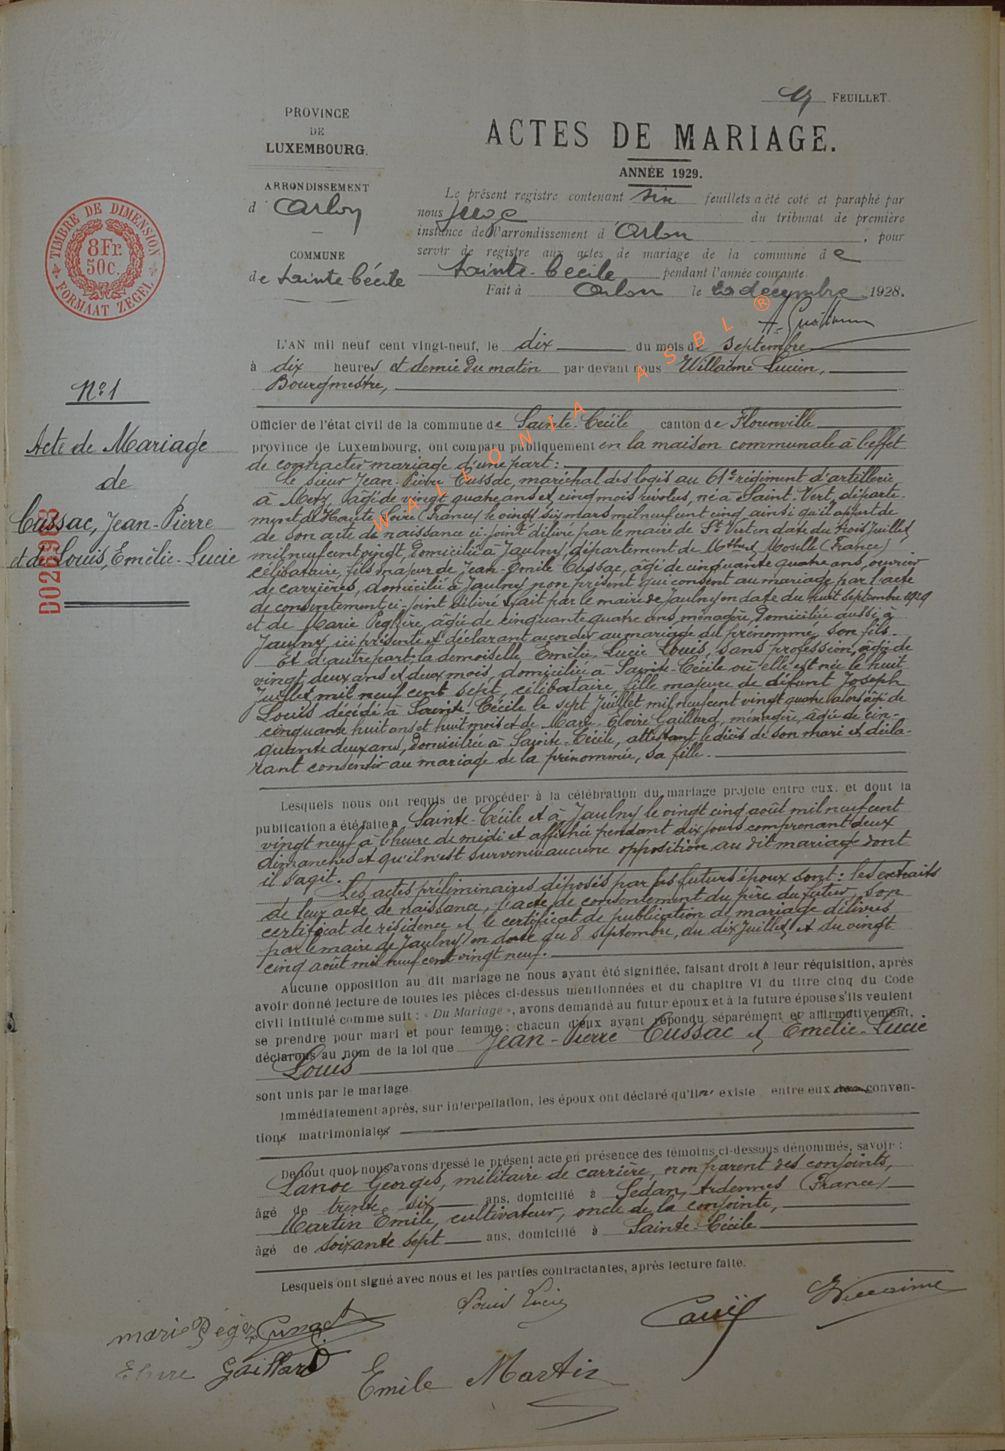 FEUILLET.
PROVINCE
DE
LUXEMBOURG.
ARRONDISSEMENT
d' Arlon
COMMUNE
de Sainte Cécile
ACTES DE MARIAGE.
ANNÉE 1929.
Le présent registre contenant six feuillets a été coté et paraphé par
nous Juge du tribunal de première
instance de l'arrondissement d' Arlon, pour
servir de registre aux actes de mariage de la commune de
Sainte-Cécile pendant l'année courante.
Fait à Arlon le décembre 1928.
TIMBRE DE DIMENSION
8Fr.
50c.
FORMAAT ZEGEL
WALLONIA ASBL ®
N° 1
Acte de Mariage
de
Cussac, Jean-Pierre
et de Louis, Emélie-Lucie
L'AN mil neuf cent vingt-neuf, le dix du mois de septembre
à dix heures et demie du matin par devant nous Willaime Lucien,
Bourgmestre,
Officier de l'état civil de la commune de Sainte-Cécile canton de Florenville
province de Luxembourg, ont comparu publiquement en la maison communale à l'effet
de contracter mariage d'une part:
Le sieur Jean-Pierre Cussac, maréchal des logis au 61e régiment d'artillerie
à Metz, âgé de vingt quatre ans et cinq mois révolus, né à Saint-Vert, départe-
ment de Haute Loire (France) le vingt six mars mil neuf cent cinq ainsi qu'il appert de
de son acte de naissance ci-joint délivré par le maire de St Vert en date du trois juillet
mil neuf cent vingt, domicilié à Jaulny, département de Mthe et Moselle (France)
célibataire, fils majeur de Jean-Emile Cussac, âgé de cinquante quatre ans, ouvrier
de carrières, domicilié à Jaulny non présent qui consent au mariage par l'acte
de consentement ci-joint délivré et fait par le maire de Jaulny en date du huit septembre 1929
et de Marie ans, ménagère, domiciliée aussi à
Jaulny, ici présente et déclarant accorder au mariage du prénommé, son fils.
Et d'autre part: la demoiselle Emélie-Lucie Louis, sans profession, âgée de
vingt deux ans et deux mois, domiciliée à Sainte-Cécile où elle est née le huit
Juillet mil neuf cent sept, célibataire, fille majeure de défunt Joseph
Louis décédé à Sainte-Cécile le sept Juillet mil neuf cent vingt quatre alors âgé de
cinquante huit ans et huit mois et de Marie Gaillard, ménagère, âgée de cin-
quante deux ans, domiciliée à Sainte-Cécile, attestant le décès de son mari et décla-
rant consentir au mariage de la prénommée, sa fille.
Lesquels nous ont requis de procéder à la célébration du mariage projeté entre eux, et dont la
publication a été faite à Sainte-Cécile et à Jaulny le vingt cinq août mil neuf cent
vingt neuf à l'heure de midi et affichée pendant dix jours comprenant deux
dimanches et qu'il n'est survenu aucune opposition au dit mariage dont
il s'agit.
Les actes préliminaires déposés par les futurs époux sont: les extraits
de leur acte de naissance, l'acte de consentement du père du futur, son
certificat de résidence et le certificat de publication de mariage délivrés
par le maire de Jaulny en date du 8 septembre, du dix Juillet et du vingt
cinq août mil neuf cent vingt neuf.
Aucune opposition au dit mariage ne nous ayant été signifiée, faisant droit à leur réquisition, après
avoir donné lecture de toutes les pièces ci-dessus mentionnées et du chapitre VI du titre cinq du Code
civil intitulé comme suit : « Du Mariage », avons demandé au futur époux et à la future épouse s'ils veulent
se prendre pour mari et pour femme; chacun d'eux ayant répondu séparément et affirmativement,
déclarons au nom de la loi que Jean-Pierre Cussac et Emélie-Lucie
Louis
sont unis par le mariage
Immédiatement après, sur interpellation, les époux ont déclaré qu'il n' existe entre eux conven-
tions matrimoniales
De tout quoi nous avons dressé le présent acte en présence des témoins ci-dessous dénommés, savoir :
Georges, militaire de carrière, non parent des conjoints,
âgé de trente-six ans, domicilié à Sedan, Ardennes (France)
Martin Emile, cultivateur, oncle de la conjointe,
âgé de soixante sept ans, domicilié à Sainte-Cécile
Lesquels ont signé avec nous et les parties contractantes, après lecture faite.
Louis Lucie
Willaime
Marie
Gaillard
Emile Martin